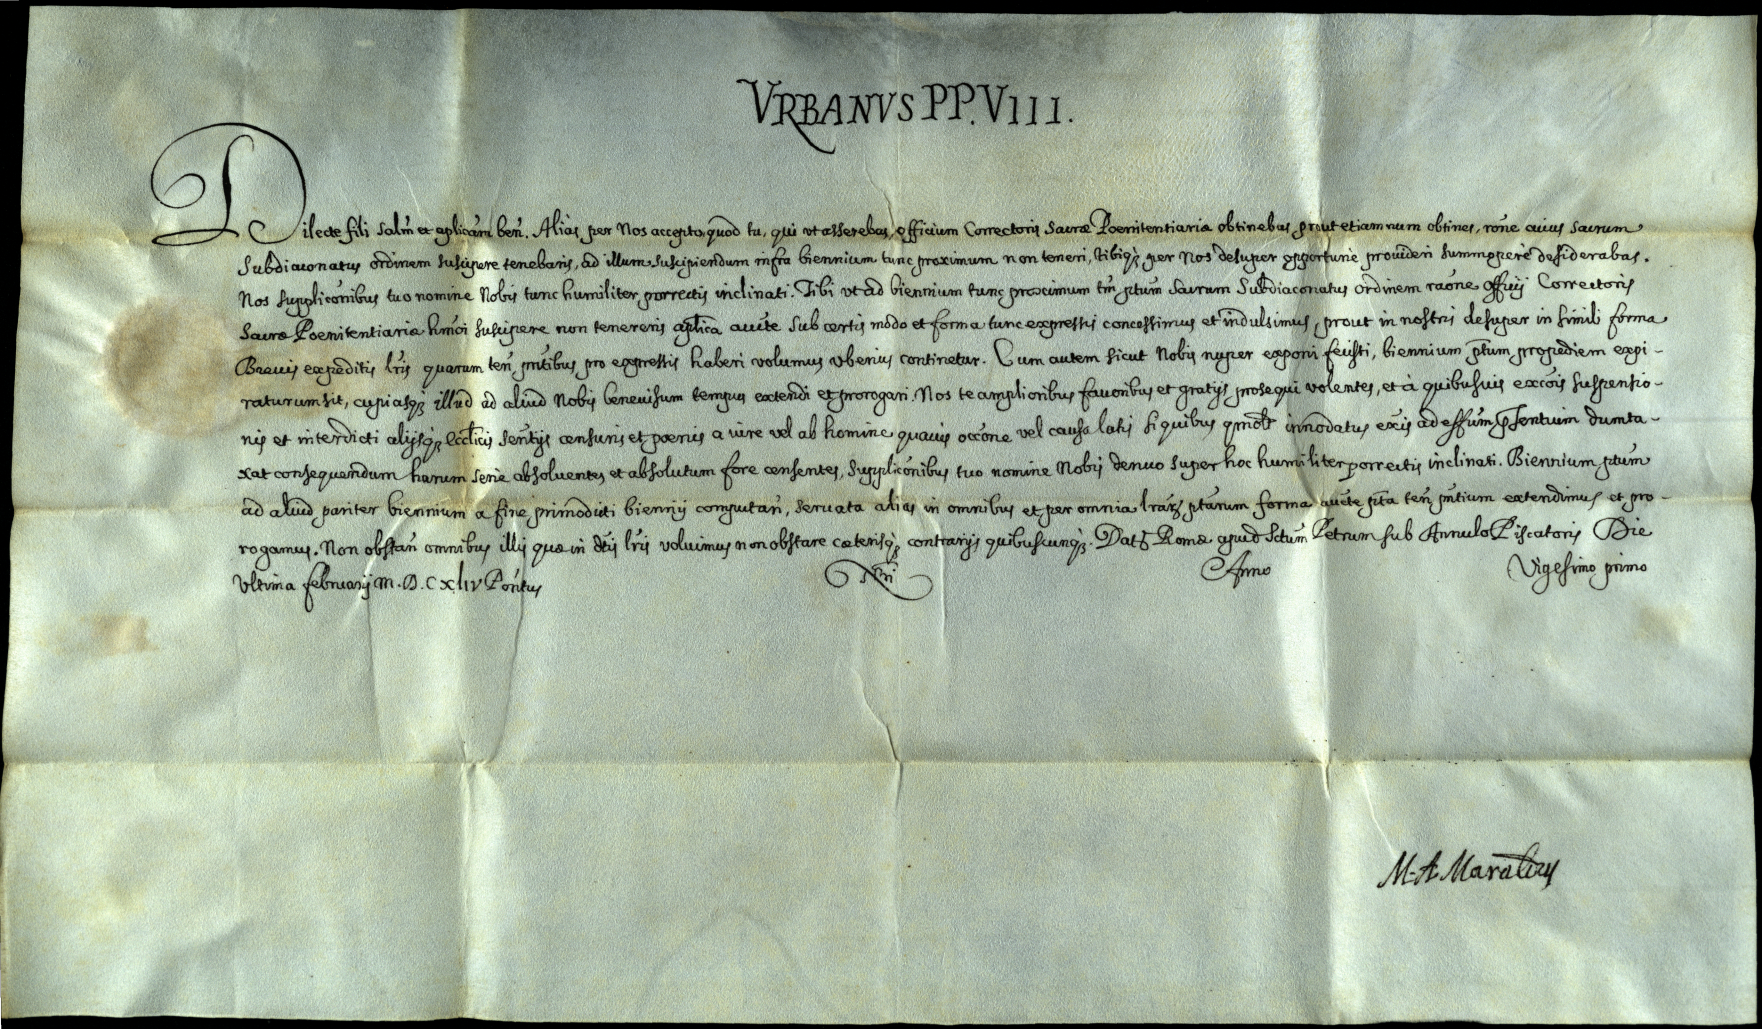 VRBANVS PP. VIII.
Dilecte fili salm̃ et aplicam ben̄. Aliàs per Nos accepto, quod tu, qui vt asserebas, officium Correctoris sacræ Poenitentiariæ obtinebas, prout etiamnum obtines, rōne cuius sacrum
subdiaconatus ordinem suscipere tenebaris, ad illum suscipiendum infra biennium tunc proximum non teneri, tibiq; per Nos desuper opportunè prouideri summoperè desiderabas.
Nos supplicōnibus tuo nomine Nobis tunc humiliter porrectis inclinati. Tibi vt ad biennium tunc proximum tm̄ ptum sacrum Subdiaconatus ordinem raōne officij Correctoris
sacræ Poenitentiariæ hmōi suscipere non tenereris aplica aucte sub certis modo et forma tunc expressis concessimus et indulsimus, prout in nostris desuper in simili forma
Breuis expeditis lris quarum ten̄ pn̄tibus pro expressis haberi volumus vberius continetur. Cum autem sicut Nobis nuper exponi fecisti, biennium ptum propediem expi-
raturum sit, cupiasq; illud ad aliud Nobis beneuisum tempus extendi et prorogari. Nos te amplioribus fauoribus et gratijs prosequi volentes, et à quibusuis excōis suspensio-
nis et interdicti alijsq; eccl̄icis sent̄ijs censuris et poenis a iure vel ab homine quauis occōne vel causa latis si quibus qmōlt innodatus exis ad effum p̄sentium dumta-
xat consequendum harum serie absoluentes et absolutum fore censentes, supplicōnibus tuo nomine Nobis denuo super hoc humiliter porrectis inclinati. Biennium ptum
ad aliud pariter biennium a fine primodicti biennij computan̄, seruata alias in omnibus et per omnia lrarz ptarum forma aucte pta ten̄ pn̄tium extendimus et pro-
rogamus. Non obstan̄ omnibus illis quæ in dtis lris voluimus non obstare cæterisq; contrarijs quibuscunq;. Dat̄ Romæ apud Sctum Petrum sub Annulo Piscatoris Die
Vltima februarij M.D.CXLIV Pontus Nri Anno Vigesimo primo
M. A. Maraldus